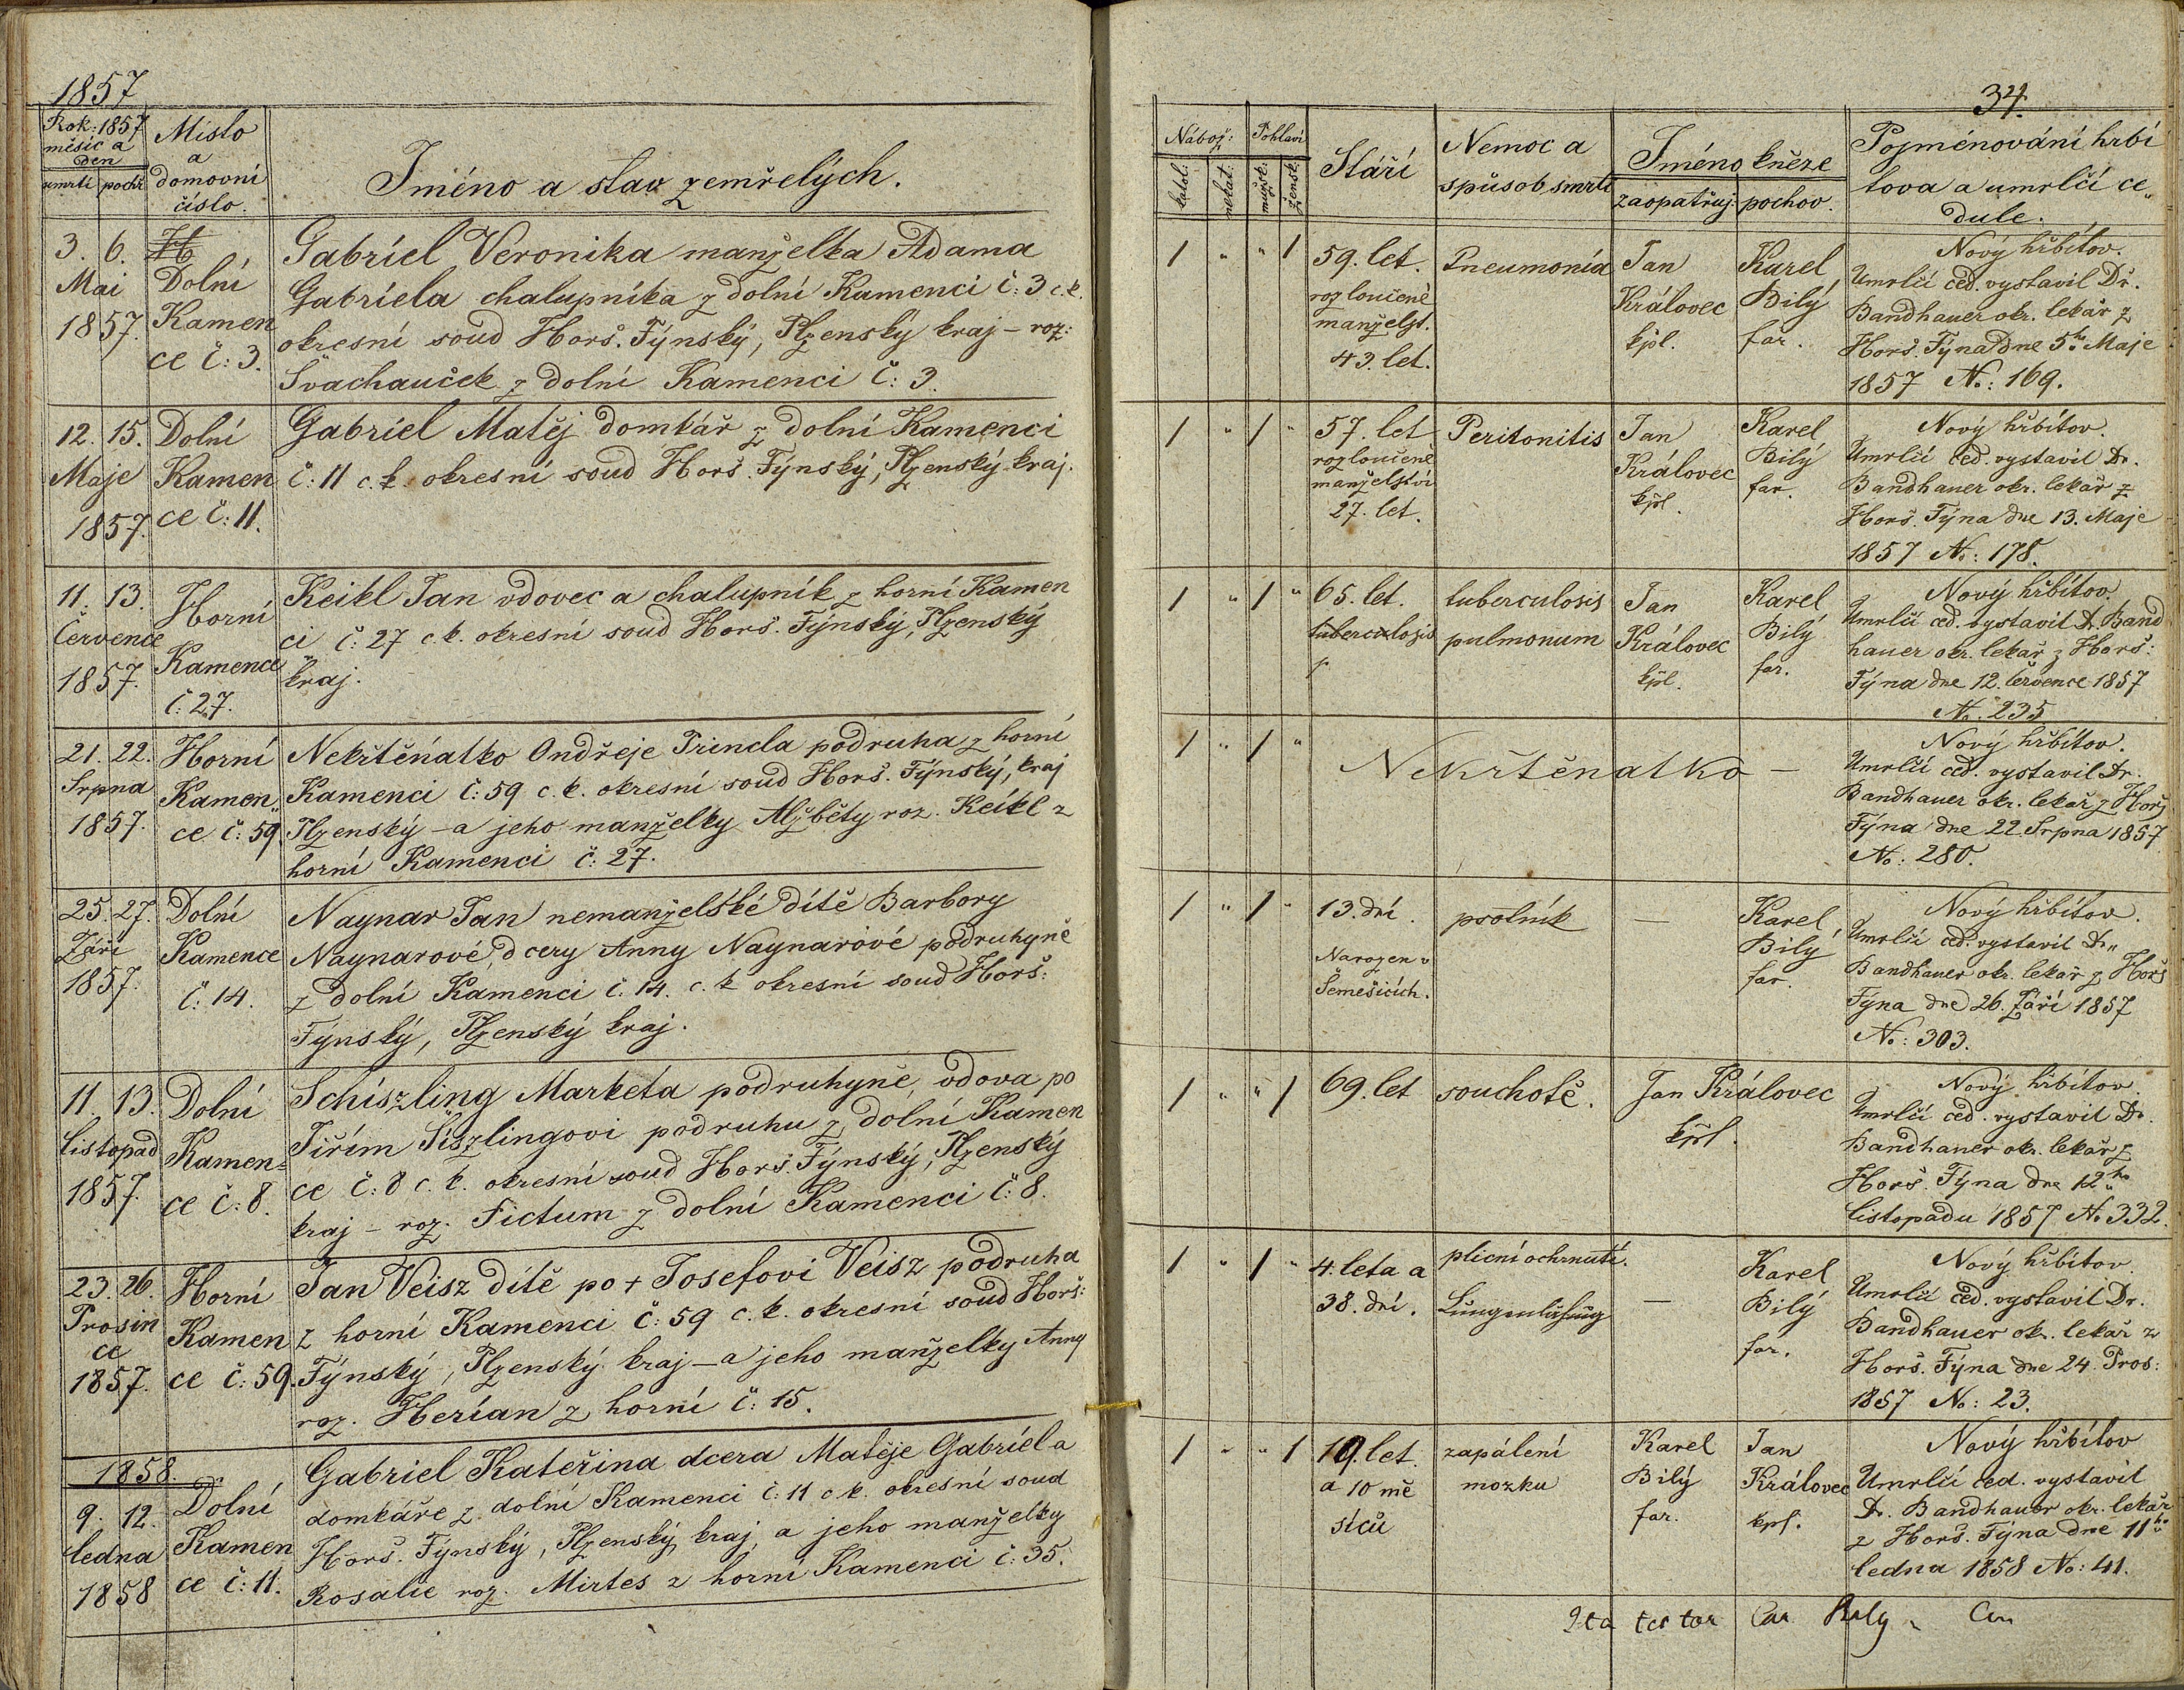 1857
Rok: 1857
měsíc a
den
umrtí pochř
Místo
a
domovní
číslo.
Jméno a stav zemřelých.
3. 6.
Mai
1857.
Dolní
Kamen
ce č: 3.
Gabriel Veronika manželka Adama
Gabriela chalupníka z dolní Kamenci č: 3 c. k.
okresní soud Horš. Týnský, Plzenský kraj – roz:
Švachauček z dolní Kamenci č: 3.
12. 15.
Maje
1857.
Dolní
Kamen
ce č: 11.
Gabriel Matěj domkář z dolní Kamenci
č: 11 c. k. okresní soud Horš. Týnský, Plzenský kraj.
11. 13.
Července
1857.
Horní
Kamence
č: 27.
Keikl Jan vdovec a chalupník z horní Kamen
ci č: 27 c. k. okresní soud Horš. Týnský, Plzenský
kraj.
21. 22.
Srpna
1857.
Horní
Kamen„
ce č: 59.
Nekřtěňatko Ondřeje Princla podruha z horní
Kamenci č: 59 c. k. okresní soud Horš. Týnský, kraj
Plzenský – a jeho manželky Alžběty roz. Keikl z
horní Kamenci č: 27.
25. 27.
Září
1857.
Dolní
Kamence
č: 14.
Naynar Jan nemanželské dítě Barbory
Naynarové, dcery Anny Naynarové podruhyně
z dolní Kamenci č. 14. c. k. okresní soud Horš:
Týnský, Plzenský kraj.
11. 13.
listopad
1857.
Dolní
Kamen=
ce č: 8.
Schiszling Marketa podruhyně, vdova po
Jiřím Šiszlingovi podruhu z dolní Kamen
ce č: 8 c. k. okresní soud Horš. Týnský, Plzenský
kraj – roz. Fictum z dolní Kamenci č: 8.
23. 26.
Prosin
ce
1857.
Horní
Kamen
ce č: 59.
Jan Veisz dítě po + Josefovi Veisz podruha
z horní Kamenci č: 59 c. k. okresní soud Horš:
Týnský, Plzenský kraj – a jeho manželky Anny
roz. Herian z horní č: 15.
1858.
9. 12.
ledna
1858
Dolní
Kamen
ce č: 11.
Gabriel Kateřina dcera Matěje Gabriela
domkáře z dolní Kamenci č: 11 c. k. okresní soud
Horš. Týnský, Plzenský kraj, a jeho manželky
Rosalie roz. Mirtes z horní Kamenci č: 35.
34.
Nábož: Pohlaví
katol: nekat: mužsk: žensk:
Stáří
Nemoc a
spůsob smrti
Jméno kněze
zaopatřuj. pochov.
Pojménování hrbí
tova a umrlčí ce„
dule.
1 „ „ 1
59. let.
rozloučené
manželst.
43. let.
Pneumonia
Jan
Královec
kpl.
Karel
Bilý
far.
Nový hřbítov.
Umrlčí ced. vystavil Dr.
Bandhauer okr. lekář z
Horš. Týna Dne 5ho Maje
1857 No: 169.
1 „ 1 „
57. let
rozloučené
manželství
27. let.
Peritonitis
Jan
Královec
kpl.
Karel
Bilý
far.
Nový hřbítov.
Umrlčí ced. vystavil Dr.
Bandhauer okr. lekář z
Horš. Týna dne 13. Maje
1857 No: 178.
1 „ 1 „
65. let.
tuberculosis
p
tuberculosis
pulmonum
Jan
Královec
kpl.
Karel
Bilý
far.
Nový hřbítov.
Umrlčí ced. vystavil Dr. Band
hauer okr. lekář z Horš:
Týna dne 12. července 1857
No. 235
1 „ 1 „
Nekřtěnatko –
Nový hřbítov.
Umrlčí ced. vystavil Dr.
Bandhauer okr. lekař z Horš
Týna dne 22 Srpna 1857
No: 280.
1 „ 1 „
13. dní.
Narozen v
Semešicích.
psotník
—
Karel
Bilý
far.
Nový hřbítov.
Umrlčí ced. vystavil Dr„
Bandhauer okr. lekař z Horš
Týna dne 26. Září 1857
No: 303.
1 „ „ 1
69. let
souchotě.
Jan Královec
kpl.
Nový hřbítov
Umrlčí ced. vystavil Dr.
Bandhauer okr. lekař z
Horš. Týna dne 12ho
listopadu 1857 No 332.
1 „ 1 „
4. leta a
38. dní.
plicní ochrnutí.
Lungenlähmung
—
Karel
Bilý
far.
Nový hřbítov.
Umrlčí ced. vystavil Dr.
Bandhauer okr. lekař z
Horš. Týna dne 24. Pros:
1857 No: 23.
1 „ „ 1
19. let.
a 10 mě
síců
zapálení
mozku
Karel
Bilý
far.
Jan
Královec
kpl.
Nový hřbítov
Umrlčí ced. vystavil
Dr. Bandhauer okr. lekař
z Horš. Týna dne 11ho
ledna 1858 No: 41.
Ita testor Car Bilý